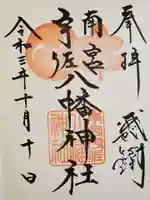 奉拝
南宮
宇佐八幡神社
令和三年十月十日